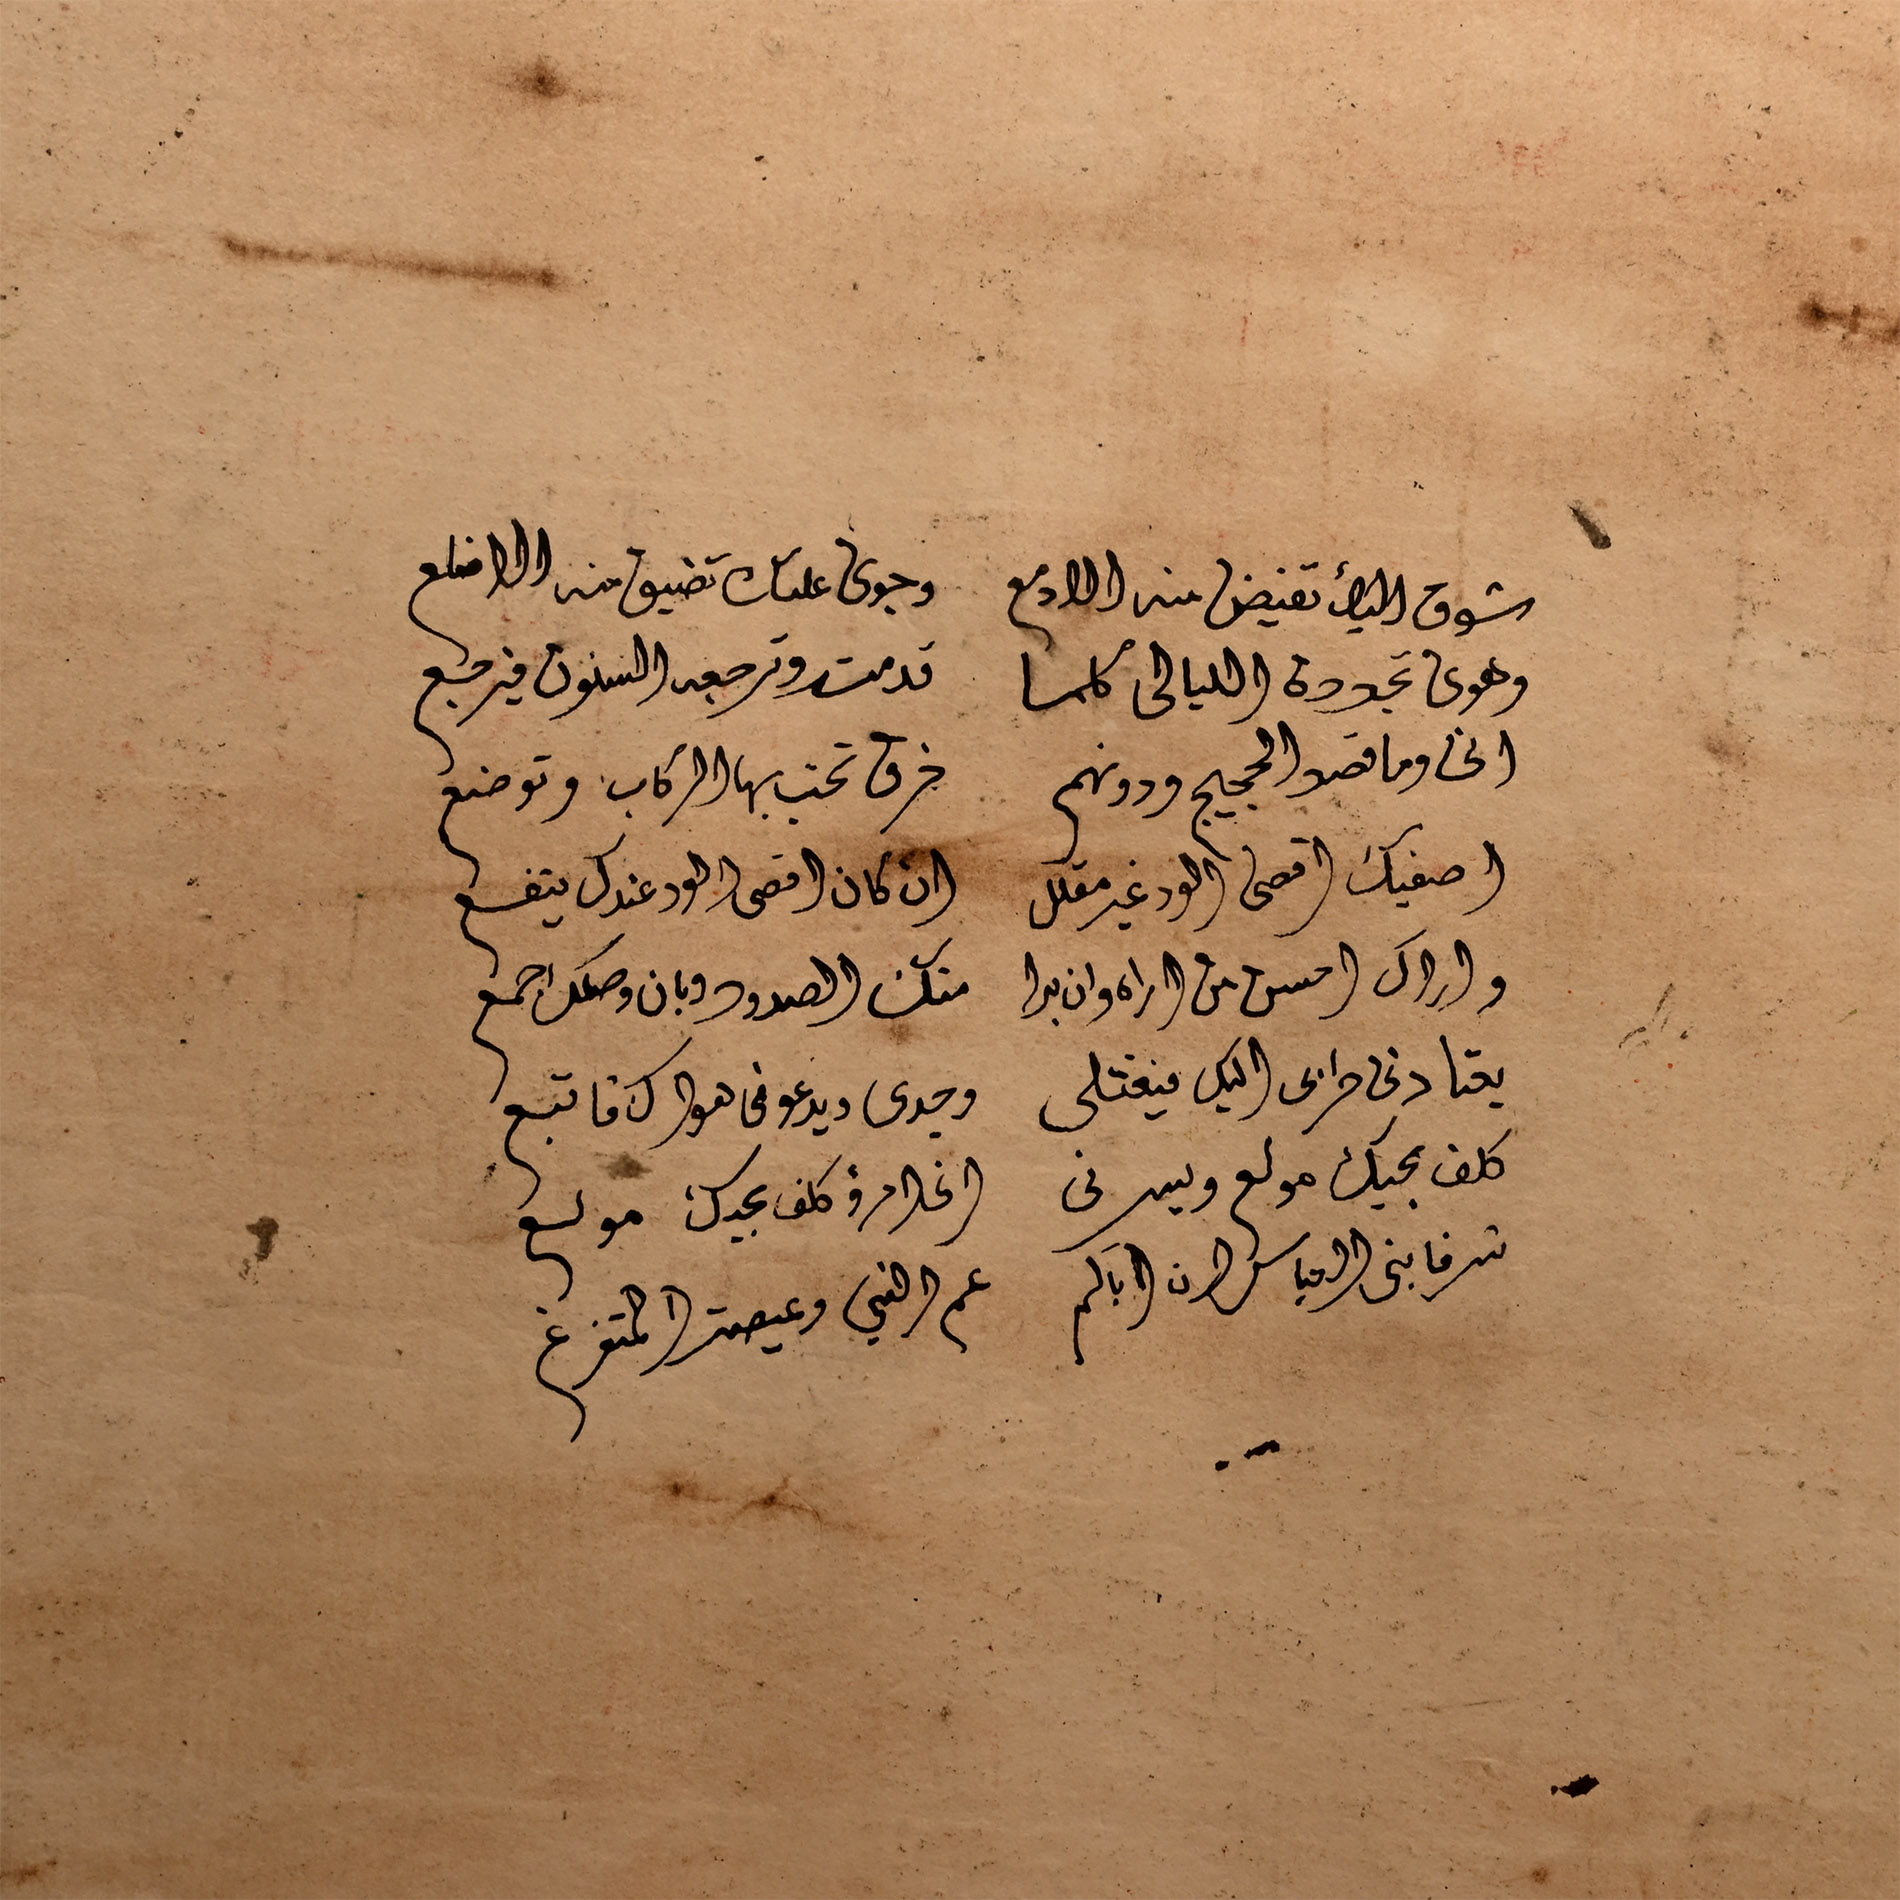 شوق اليك تفيض منه الادمع وجوى عليك تضيق منه الاضلع
وهوى تجدده الليالى كلما قدمت وترجعه السنون فيرجع
انى وما قصد الحجيج ودونهم خرق تخب بها الركاب وتوضع
اصفيك اقصى الود غير مقلل ان كان اقصى الود عندك ينفع
واراك احسن من اراه وان بدا منك الصدود وبان وصلك اجمع
يعتادنى طربى اليك فيغتلى وجدى ويدعونى هواك فاتبع
كلف بحبك مولع ويسرنى انى امرؤ كلف بحبك مولع
شرفا بنى العباس ان اباكم عم النبي وعيصه المتفرع